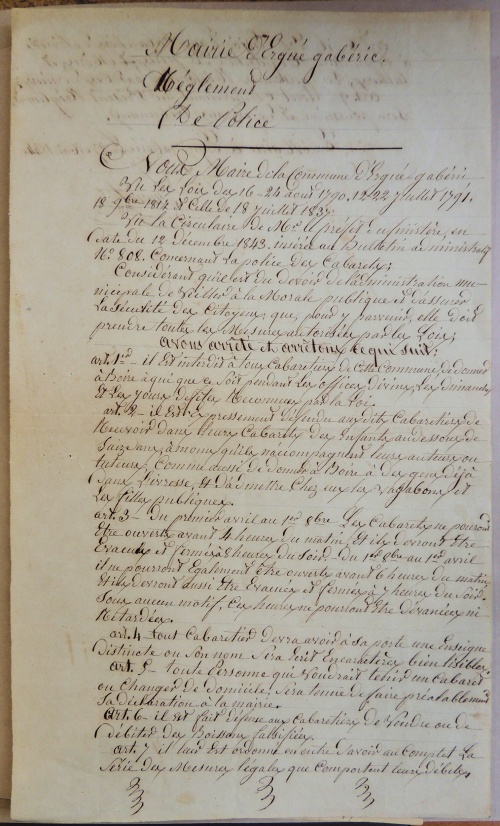 Mairie D'Ergué gabéric.
Réglement
De Police
Nous Maire de la Commune d'Ergué-gabéric
Vu les Lois des 16-24 aout 1790. 12-22 juillet 1791.
18 9bre 1814 et Celle de 18 juillet 1837.
Vu la Circulaire de Mr le préfet du finistère, en
date du 12 decembre 1843. inséré au Bulletin administratif
No. 808. Concernant la police des Cabarets;
Considérant qu'il est du devoir de l'administration mu-
nicipale de Veiller à la Morale publique et d'assurer
la Sécurité des Citoyens, que, pour y parvenir, elle doit
prendre toutes les Mesures autorisées par les Lois;
avons arrêté et arrêtons ce qui suit:
art. 1er - il Est interdit à tous Cabaretiers de Cette Commune de donner
à Boire à qui que ce Soit pendant les offices divins, les dimanches
Et les jours de fêtes Reconnus par la Loi.
art. 2 - il Est Expressement défendu auxdits Cabaretiers de
Recevoir dans leurs Cabarets des Enfants au dessous de
Seize ans, à moins qu'ils n'accompagnent leurs auteurs ou
tuteurs, Comme aussi de donner à Boire à des gens déjà
dans l'ivresse, Et d'admettre Chez eux les Vagabons et
Les filles publiques.
art. 3 - Du premier avril au 1er 8bre Les Cabarets ne pourront
Etre ouverts avant 4 heures du matin, Et ils devront être
Evacués et fermés à 8 heures du Soir. Du 1er 8bre au 1er avril
il ne pourront Egalement être ouverts avant 6 heures du matin
Et ils devront aussi Etre Evacués Et fermés à 7 heures du Soir.
Sous aucun motif, Ces heures ne pourront Etre dévancées ni
Retardées.
art. 4 - tout Cabaretier devra avoir à Sa porte une Ensigne
Distincte ou Son nom Sera Ecrit En caractères bien lisibles.
art. 5 - toute Personne qui Voudrait tenir un Cabaret
ou Changer de domicile, Sera tenue de faire préalablement
Sa déclaration à la mairie.
art. 6 - il Est fait défense aux Cabaretiers de Vendre ou de
Débiter des Boissons falsifiées.
art. 7 il leur Est ordonné en outre d'avoir au Complet La
Série des Mesures légales que Comportent leurs débits,